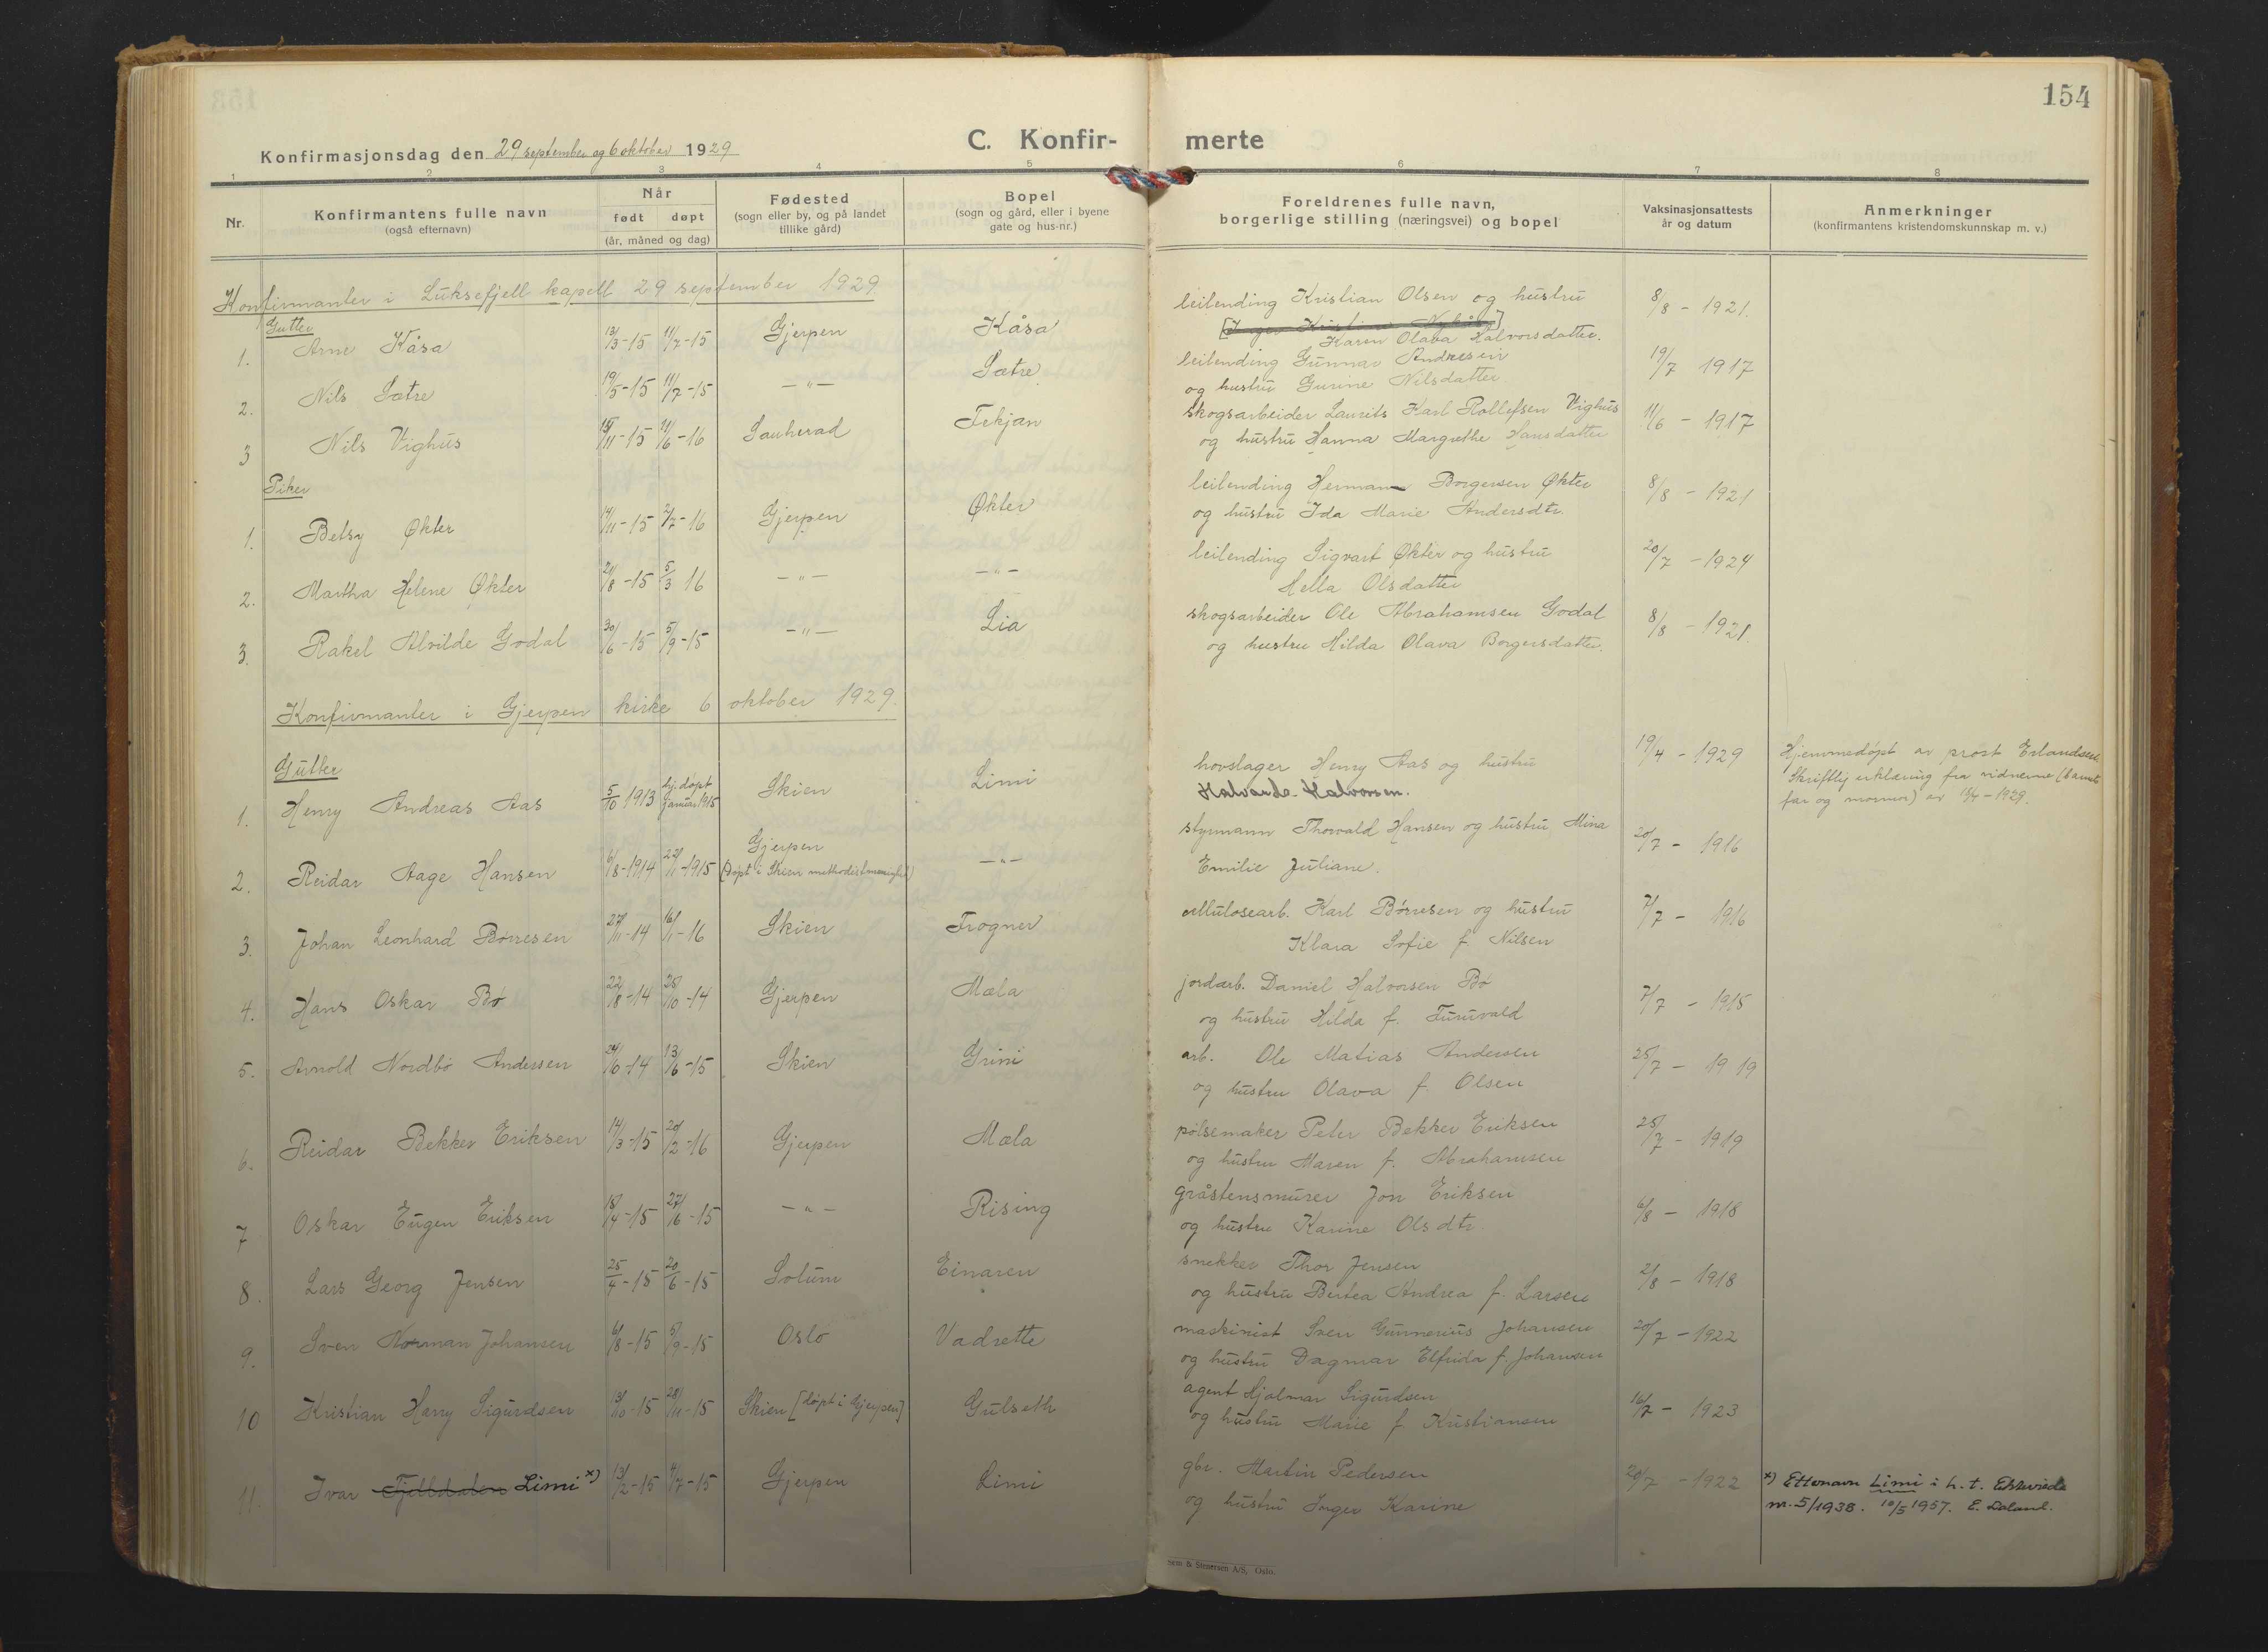 154
Konfirmasjonsdag den 29 september og 6 oktober 1929
C. Konfir- merte
1 2 3 4 5 6 7 8
Nr.
Konfirmantens fulle navn
(også efternavn)
Når
født døpt
(år, måned og dag)
Fødested
(sogn eller by, og på landet
tillike gård)
Bopel
(sogn og gård, eller i byene
gate og hus-nr.)
Foreldrenes fulle navn,
borgerlige stilling (næringsvei) og bopel
Vaksinasjonsattests
år og datum
Anmerkninger
(konfirmantens kristendomskunnskap m. v.)
Konfirmanter i Luksefjell kapell 29 september 1929
Gutter
1. Arne Kåsa 13/3-15 11/7-15 Gjerpen Kåsa leilending Kristian Olsen og hustru 8/8 - 1921.
Karen Olava Halvorsdatter.
2. Nils Sætre 19/5-15 11/7-15 -"- Sætre leilending Gunnar Andresen 19/7 1917
og hustru Gurine Nilsdatter
3 Nils Vighus 15/11-15 11/6-16 Sauherad Tekjan skogsarbeider Laurits Karl Rollefsen Vighus 11/6 - 1917
og hustru Hanna Margrethe Hansdatter
Piker
1. Betsy Økter 14/11-15 2/7-16 Gjerpen Økter leilending Herman Borgersen Økter 8/8 - 1921
og hustru Ida Marie Andersdtr.
2. Martha Helene Økter 21/8-15 5/3 16 -"- -"- leilending Sigvart Økter og hustru 20/7 - 1924
Hella Olsdatter
3. Rakel Alvilde Godal 30/6-15 5/9-15 -"- Lia skogsarbeider Ole Abrahamsen Godal 8/8 - 1921.
og hustru Hilda Olava Borgersdatter.
Konfirmanter i Gjerpen kirke 6 oktober 1929.
Gutter
1. Henry Andreas Aas 5/10 1913 hj. døpt januar 1915 Skien Limi hovslager Henry Aas og hustru 19/4 - 1929 Hjemmedøpt av prost Erlandsen.
Halvorsen. Skriftlig erklæring fra vidnerne (barnets
far og mormor) av 13/4-1929.
2. Reidar Aage Hansen 6/8-1914 22/11-1915 Gjerpen -"- styrmann Thorvald Hansen og hustru Mina 20/7 - 1916
(Døpt i Skien methodistmenighet) Emilie Juliane.
3. Johan Leonhard Børresen 27/11-14 16/1-16 Skien Frogner cellulosearb. Karl Børresen og hustru 7/7 - 1916
Klara Sofie f Nilsen
4. Hans Oskar Bø 22/8-14 25/10-14 Gjerpen Mæla jordarb. Daniel Halvorsen Bø 7/7 - 1915
og hustru Hilda f. Furuvald
5. Arnold Nordbø Andersen 24/10-14 13/6-15 Skien Grini arb. Ole Matias Andersen 25/7 - 1919
og hustru Olava f. Olsen
6. Reidar Bekker Eriksen 14/3-15 20/2-16 Gjerpen Mæla pølsemaker Peter Bekker Eriksen 25/7 - 1919
og hustru Maren f. Abrahamsen
7 Oskar Eugen Eriksen 18/4-15 27/6-15 -"- Rising gråstensmurer Jon Eriksen 6/8 - 1918
og hustru Karine Olsdtr.
8. Lars Georg Jensen 25/4-15 20/6-15 Solum Einaren snekker Thor Jensen 2/8 - 1918
og hustru Bertea Andrea f. Larsen
9. Sven Norman Johansen 6/8-15 5/9-15 Oslo Vadrette maskinist Sven Gunnerius Johansen 20/7 - 1922
og hustru Dagmar Elfrida f. Johansen
10 Kristian Harry Sigurdsen 13/10-15 28/11-15 Skien [døpt i Gjerpen] Gulseth agent Hjalmar Sigurdsen 16/7 - 1923
og hustru Marie f Kristiansen
11. Ivar Fjelldalen Limi x) 13/2-15 4/7-15 Gjerpen Limi gbr. Martin Pedersen 20/7 - 1922 x) Ettenavn Limi i h. t.
og hustru Inger Karine nr. 5/1938. 10/5 1957. E. Laland.
Sem & Stenersen A/S, Oslo.